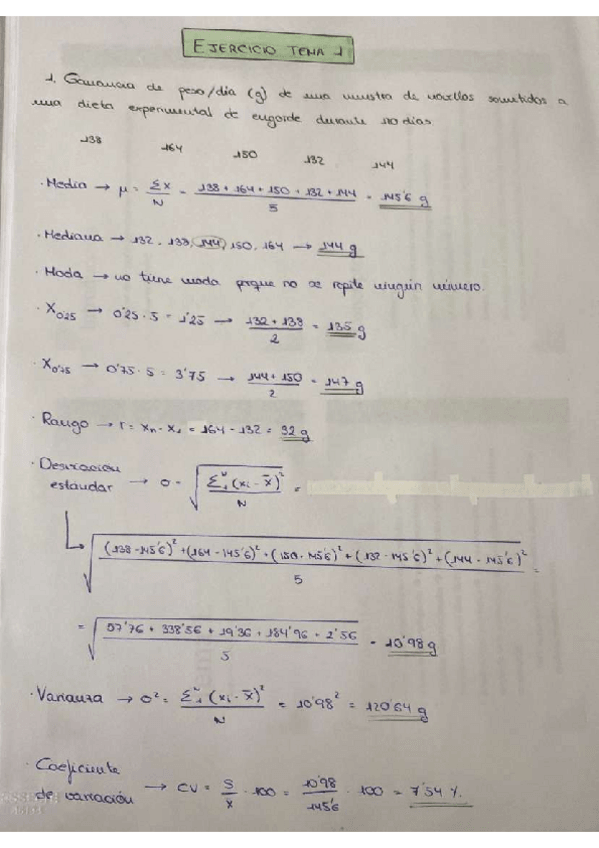 EJERCICIO TEMA 1
1. Ganancia de peso/día (g) de una muestra de novillos sometidos a
una dieta experimental de engorde durante 110 días
138 164 150 132 144
· Media → μ = Σx / N = 138 + 164 + 150 + 132 + 144 / 5 = 145'6 g
· Mediana → 132, 138, 144, 150, 164 → 144 g
· Moda → no tiene moda porque no se repite ningún número.
· X0'25 → 0'25 · 5 = 1'25 → 132 + 138 / 2 = 135 g
· X0'75 → 0'75 · 5 = 3'75 → 144 + 150 / 2 = 147 g
· Rango → r = xn - x1 = 164 - 132 = 32 g
· Desviación estandar → σ = √ Σ1N (xi - x̄)² / N =
√ (138 - 145'6)² + (164 - 145'6)² + (150 - 145'6)² + (132 - 145'6)² + (144 - 145'6)² / 5 =
= √ 57'76 + 338'56 + 19'36 + 184'96 + 2'56 / 5 = 10'98 g
· Varianza → σ² = Σ1N (xi - x̄)² / N = 10'98² = 120'64 g
· Coeficiente de variación → CV = S / x̄ · 100 = 10'98 / 145'6 · 100 = 7'54 %